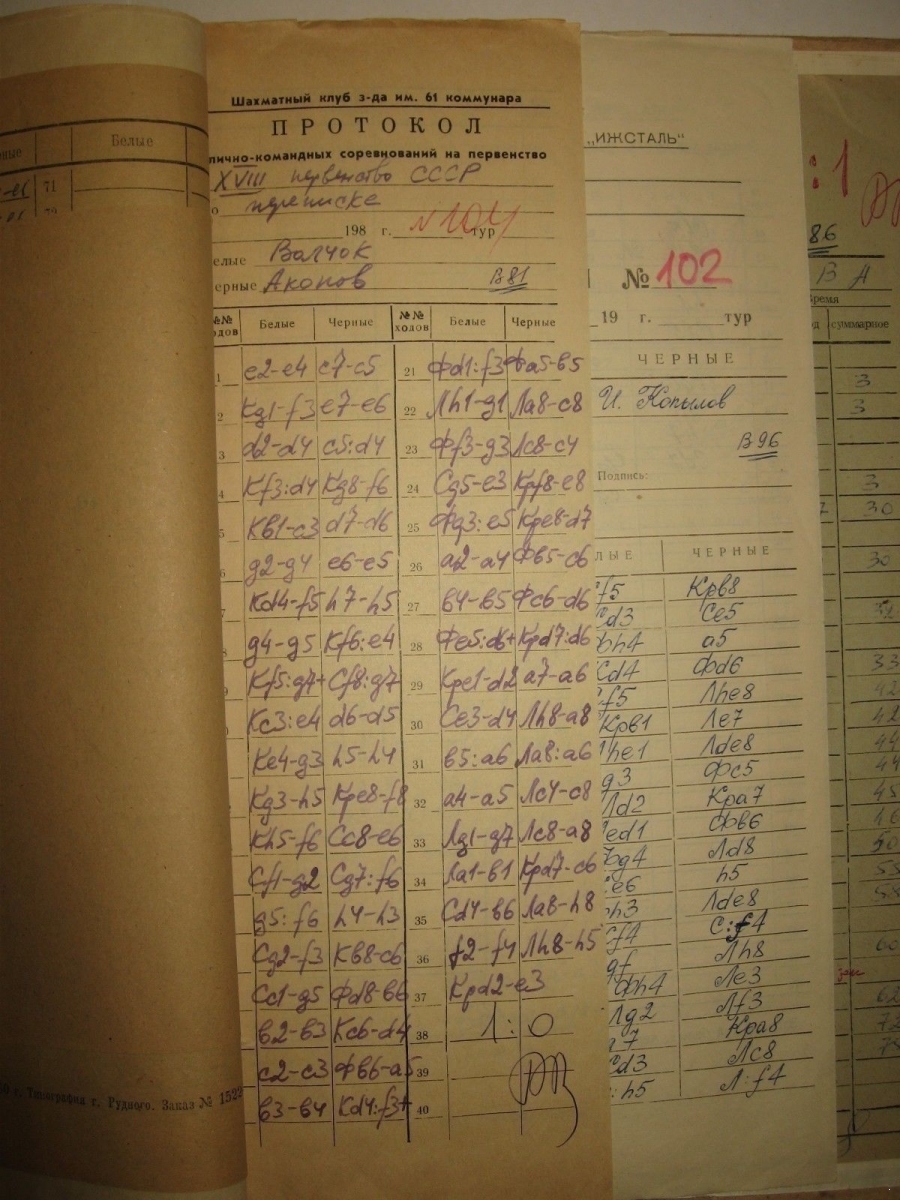 Белые
71
Шахматный клуб з-да им. 61 коммунара
ПРОТОКОЛ
лично-командных соревнований на первенство
XVIII первенство СССР
переписке
198 г. №104 тур
елые Валчок
ерные Акопов В81
№№ ходов Белые Черные №№ ходов Белые Черные
1 e2-e4 c7-c5 21 Фd1:f3 Фa5-b5
2 Kg1-f3 e7-e6 22 Лh1-g1 Лa8-c8
3 d2-d4 c5:d4 23 Фf3-g3 Лc8-c4
4 Kf3:d4 Kg8-f6 24 Cg5-e3 Kpf8-e8
5 Kb1-c3 d7-d6 25 Фg3:e5 Kpe8-d7
6 g2-g4 e6-e5 26 a2-a4 Фb5-c6
7 Kd4-f5 h7-h5 27 b4-b5 Фc6-d6
8 g4-g5 Kf6:e4 28 Фe5:d6+ Kpd7:d6
9 Kf5:g7+ Cf8:g7 29 Kpe1-d2 a7-a6
Kc3:e4 d6-d5 30 Ce3-d4 Лh8-a8
Ke4-g3 h5-h4 31 b5:a6 Лa8:a6
Kg3-h5 Kpe8-f8 32 a4-a5 Лc4-c8
Kh5-f6 Cc8-e6 33 Лg1-g7 Лc8-a8
Cf1-g2 Cg7:f6 34 Лa1-b1 Kpd7-c6
g5:f6 h4-h3 35 Cd4-b6 Лa8-h8
Cg2-f3 Kb8-c6 36 f2-f4 Лh8-h5
Cc1-g5 Фd8-b6 37 Kpd2-e3
b2-b3 Kc6-d4 38 1:0
c2-c3 Фb6-a5 39
b3-b4 Kd4:f3+ 40
г. Типография г. Рудного. Заказ № 1522
„ИЖСТАЛЬ“
№ 102
19 г. тур
ЧЕРНЫЕ
И. Копылов
В96
Подпись:
ЛЫЕ ЧЕРНЫЕ
f5 Kpb8
Cd3 Ce5
Фh4 a5
Cd4 Фd6
f5 Лhe8
Kpb1 Лe7
he1 Лde8
g3 Фc5
Лd2 Kpa7
ed1 Фb6
g4 Лd8
:e6 h5
h3 Лde8
f4 C:f4
gf Лh8
Фh4 Лe3
Лg2 Лf3
7 Kpa8
Cd3 Лc8
:h5 Л:f4
:1
86
В А
время
суммарное
3
3
3
30
30
33
42
42
44
44
45